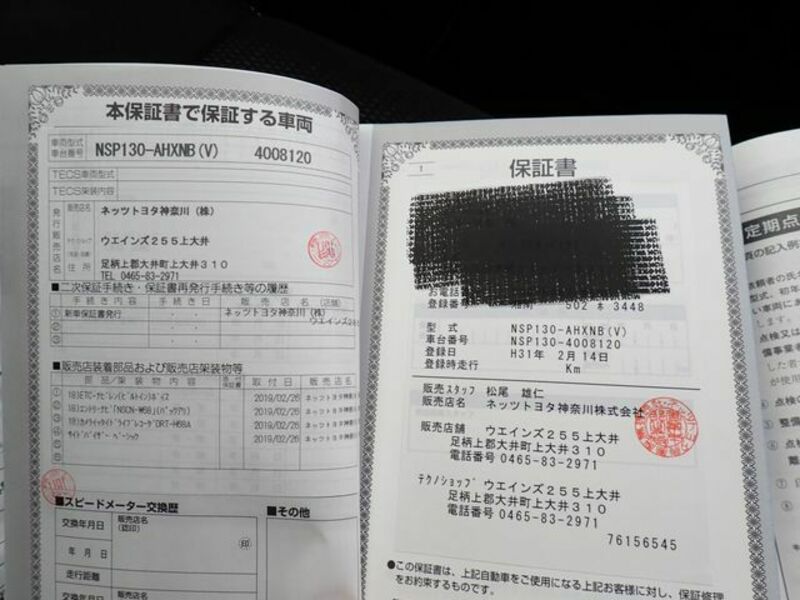 本保証書で保証する車両
車両型式
車台番号
NSP130-AHXNB(V) 4008120
TECS車両型式
TECS架装内容
発行販売店名
販売店名
ネッツトヨタ神奈川(株)
ウエインズ255上大井
住所
足柄上郡大井町上大井310
TEL 0465-83-2971
■二次保証手続き・保証書再発行手続き等の履歴
手続き内容 手続き日 販売店名(店舗)
① 新車保証書発行 ・ ・ ネッツトヨタ神奈川(株)
ウエインズ2
② ・ ・
③ ・ ・
■販売店装着部品および販売店架装物等
部品/架装物内容 取付日 販売店名
2019/02/26 ネットヨタ神奈川
2019/02/26 ネットヨタ神奈川
2019/02/26 ネットヨタ神奈川
サイドバイザー ベーシック 2019/02/26 ネットヨタ神奈川
■スピードメーター交換歴
■その他
交換年月日
販売店名
(認印)
年 月 日
㊞
走行距離
交換年月日
販売店名
1
保証書
お電話
登録番号 502 3448
型 式 NSP130-AHXNB(V)
車台番号 NSP130-4008120
登録日 H31年 2月14日
登録時走行 Km
販売スタッフ 松尾 雄仁
販売店名 ネッツトヨタ神奈川株式会社
販売店舗 ウエインズ255上大井
足柄上郡大井町上大井310
電話番号 0465-83-2971
テクノショップ ウエインズ255上大井
足柄上郡大井町上大井310
電話番号 0465-83-2971
76156545
●この保証書は、上記自動車をご使用になる上記お客様に対し、保証修理
をお約束するものです。
定期点
頁の記入例
依頼者の氏
型式、初年
い車両にあ
します。
点検又は
備事業者
した者
が使用
点検
整備